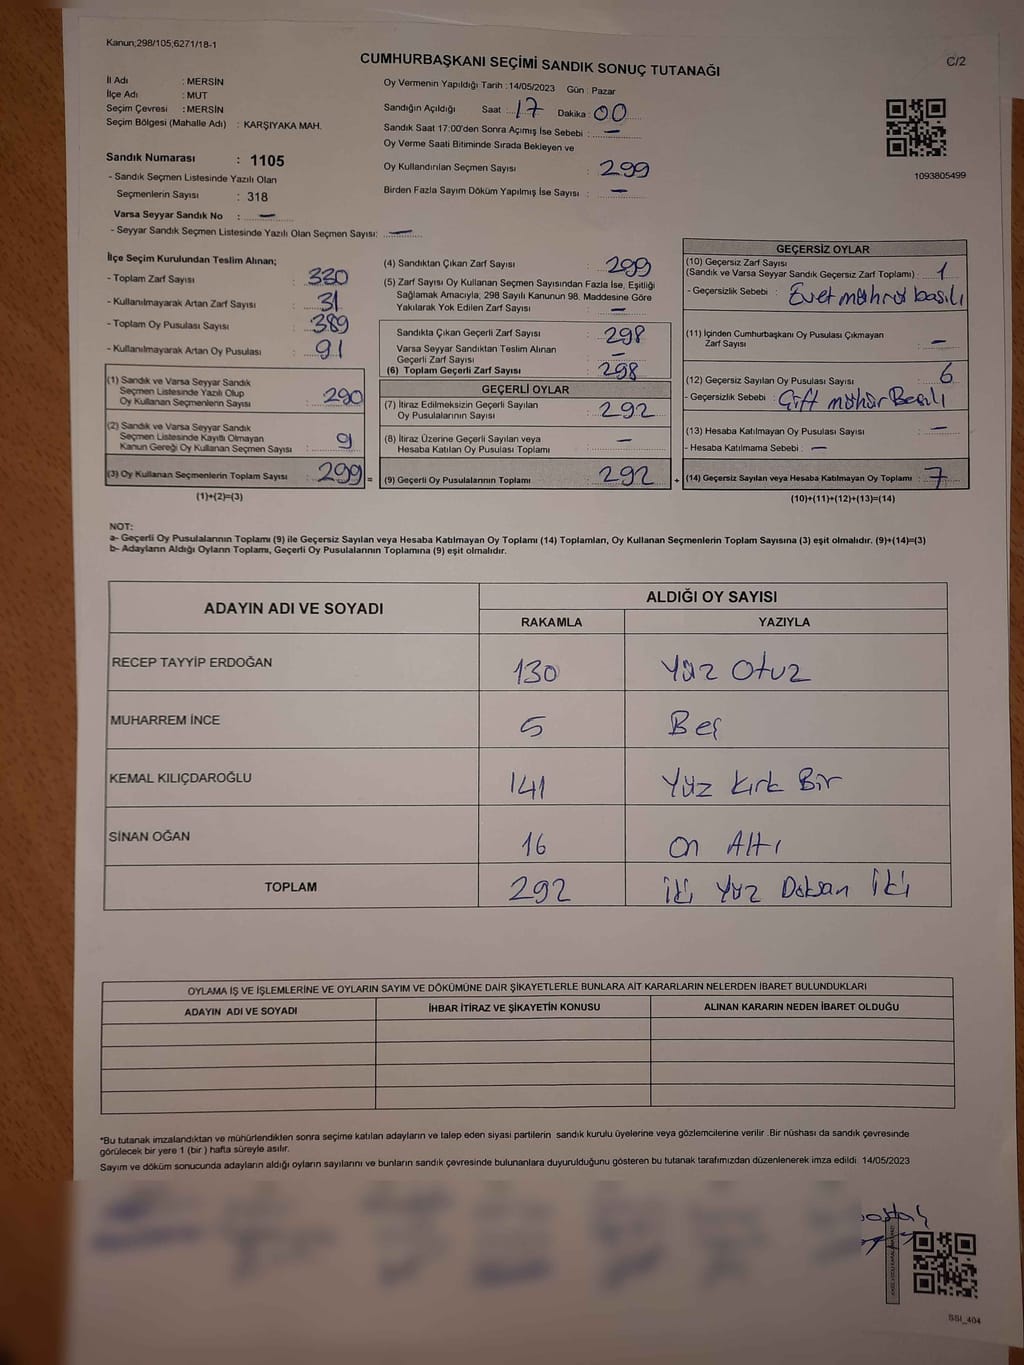 Kanun;298/105;6271/18-1
CUMHURBAŞKANI SEÇİMİ SANDIK SONUÇ TUTANAĞI
C/2
İl Adı : MERSİN
İlçe Adı : MUT
Seçim Çevresi : MERSİN
Seçim Bölgesi (Mahalle Adı) : KARŞIYAKA MAH.
Sandık Numarası : 1105
- Sandık Seçmen Listesinde Yazılı Olan
Seçmenlerin Sayısı : 318
Varsa Seyyar Sandık No : —
- Seyyar Sandık Seçmen Listesinde Yazılı Olan Seçmen Sayısı: —
Oy Vermenin Yapıldığı Tarih :14/05/2023 Gün : Pazar
Sandığın Açıldığı Saat : 17 Dakika : 00
Sandık Saat 17:00'den Sonra Açımış İse Sebebi : —
Oy Verme Saati Bitiminde Sırada Bekleyen ve
Oy Kullandırılan Seçmen Sayısı : 299
Birden Fazla Sayım Döküm Yapılmış İse Sayısı : —
1093805499
İlçe Seçim Kurulundan Teslim Alınan;
- Toplam Zarf Sayısı : 330
- Kullanılmayarak Artan Zarf Sayısı : 31
- Toplam Oy Pusulası Sayısı : 389
- Kullanılmayarak Artan Oy Pusulası : 91
(1) Sandık ve Varsa Seyyar Sandık
Seçmen Listesinde Yazılı Olup
Oy Kullanan Seçmenlerin Sayısı : 290
(2) Sandık ve Varsa Seyyar Sandık
Seçmen Listesinde Kayıtlı Olmayan
Kanun Gereği Oy Kullanan Seçmen Sayısı : 9
(3) Oy Kullanan Seçmenlerin Toplam Sayısı : 299 =
(1)+(2)=(3)
(4) Sandıktan Çıkan Zarf Sayısı : 299
(5) Zarf Sayısı Oy Kullanan Seçmen Sayısından Fazla İse, Eşitliği
Sağlamak Amacıyla, 298 Sayılı Kanunun 98. Maddesine Göre
Yakılarak Yok Edilen Zarf Sayısı : —
Sandıkta Çıkan Geçerli Zarf Sayısı : 298
Varsa Seyyar Sandıktan Teslim Alınan
Geçerli Zarf Sayısı : —
(6) Toplam Geçerli Zarf Sayısı : 298
GEÇERLİ OYLAR
(7) İtiraz Edilmeksizin Geçerli Sayılan
Oy Pusulalarının Sayısı : 292
(8) İtiraz Üzerine Geçerli Sayılan veya
Hesaba Katılan Oy Pusulası Toplamı : —
(9) Geçerli Oy Pusulalarının Toplamı : 292 +
GEÇERSİZ OYLAR
(10) Geçersiz Zarf Sayısı
(Sandık ve Varsa Seyyar Sandık Geçersiz Zarf Toplamı) : 1
- Geçersizlik Sebebi : Evet mührü basılı
(11) İçinden Cumhurbaşkanı Oy Pusulası Çıkmayan
Zarf Sayısı : —
(12) Geçersiz Sayılan Oy Pusulası Sayısı : 6
- Geçersizlik Sebebi : Çift mühür Basılı
(13) Hesaba Katılmayan Oy Pusulası Sayısı : —
- Hesaba Katılmama Sebebi : —
(14) Geçersiz Sayılan veya Hesaba Katılmayan Oy Toplamı : 7
(10)+(11)+(12)+(13)=(14)
NOT:
a- Geçerli Oy Pusulalarının Toplamı (9) ile Geçersiz Sayılan veya Hesaba Katılmayan Oy Toplamı (14) Toplamları, Oy Kullanan Seçmenlerin Toplam Sayısına (3) eşit olmalıdır. (9)+(14)=(3)
b- Adayların Aldığı Oyların Toplamı, Geçerli Oy Pusulalarının Toplamına (9) eşit olmalıdır.
ADAYIN ADI VE SOYADI ALDIĞI OY SAYISI
RAKAMLA YAZIYLA
RECEP TAYYİP ERDOĞAN 130 Yüz Otuz
MUHARREM İNCE 5 Beş
KEMAL KILIÇDAROĞLU 141 Yüz Kırk Bir
SİNAN OĞAN 16 On Altı
TOPLAM 292 İki Yüz Doksan İki
OYLAMA İŞ VE İŞLEMLERİNE VE OYLARIN SAYIM VE DÖKÜMÜNE DAİR ŞİKAYETLERLE BUNLARA AİT KARARLARIN NELERDEN İBARET BULUNDUKLARI
ADAYIN ADI VE SOYADI İHBAR İTİRAZ VE ŞİKAYETİN KONUSU ALINAN KARARIN NEDEN İBARET OLDUĞU
*Bu tutanak imzalandıktan ve mühürlendikten sonra seçime katılan adayların ve talep eden siyasi partilerin sandık kurulu üyelerine veya gözlemcilerine verilir .Bir nüshası da sandık çevresinde
görülecek bir yere 1 (bir ) hafta süreyle asılır.
Sayım ve döküm sonucunda adayların aldığı oyların sayılarını ve bunların sandık çevresinde bulunanlara duyurulduğunu gösteren bu tutanak tarafımızdan düzenlenerek imza edildi. 14/05/2023
SSI_404